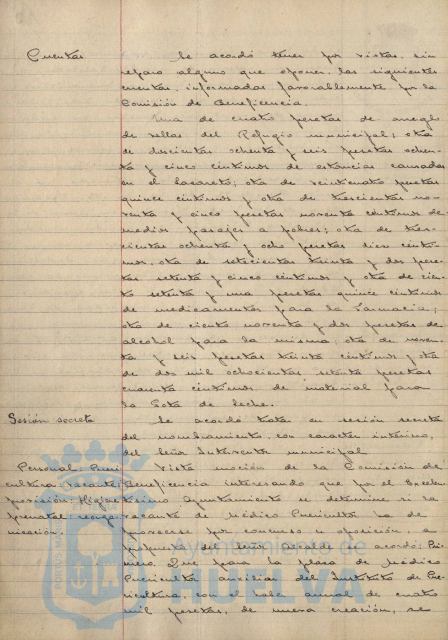 Cuentas
Se acordó tener por vistas, sin
reparo alguno que oponer, las siguientes
cuentas, informadas favorablemente por la
Comisión de Beneficencia.
Una de cuatro pesetas de arreglo
de sellos del Refugio municipal; otra
de doscientas ochenta y seis pesetas ochen-
ta y cinco céntimos de estancias causadas
en el Lazareto; otra de veinticuatro pesetas
quince céntimos y otra de trescientas no-
venta y cinco pesetas noventa céntimos de
medios pasajes a pobres; otra de tres-
cientas ochenta y ocho pesetas cinco cénti-
mos, otra de setecientas treinta y dos pese-
tas setenta y cinco céntimos y otra de cien-
to setenta y una pesetas quince céntimos
de medicamentos para la Farmacia;
otra de ciento noventa y dos pesetas de
alcohol para la misma; otra de noven-
ta y seis pesetas treinta céntimos y otra
de dos mil ochocientas setenta pesetas
cuarenta céntimos de material para
la Gota de leche.
Sesión secreta
Se acordó tratar en sesión secreta
del nombramiento, con carácter interino,
del señor Interventor municipal
Personal: Pueri
cultura vacante
provisión. Higiene
prenatal
Vista moción de la Comisión de
Beneficencia interesando que por el Excelen-
tísimo Ayuntamiento se determine si la
vacante de Médico Puericultor ha de
proveerse por concurso u oposición a
propuesta del señor Alcalde se acordó: Pri-
mero. Que para la plaza de médico
Puericultor auxiliar del Instituto de Pue-
ricultura, con el haber anual de cuatro
mil pesetas, de nueva creación, se
Ayuntamiento de
HUELVA